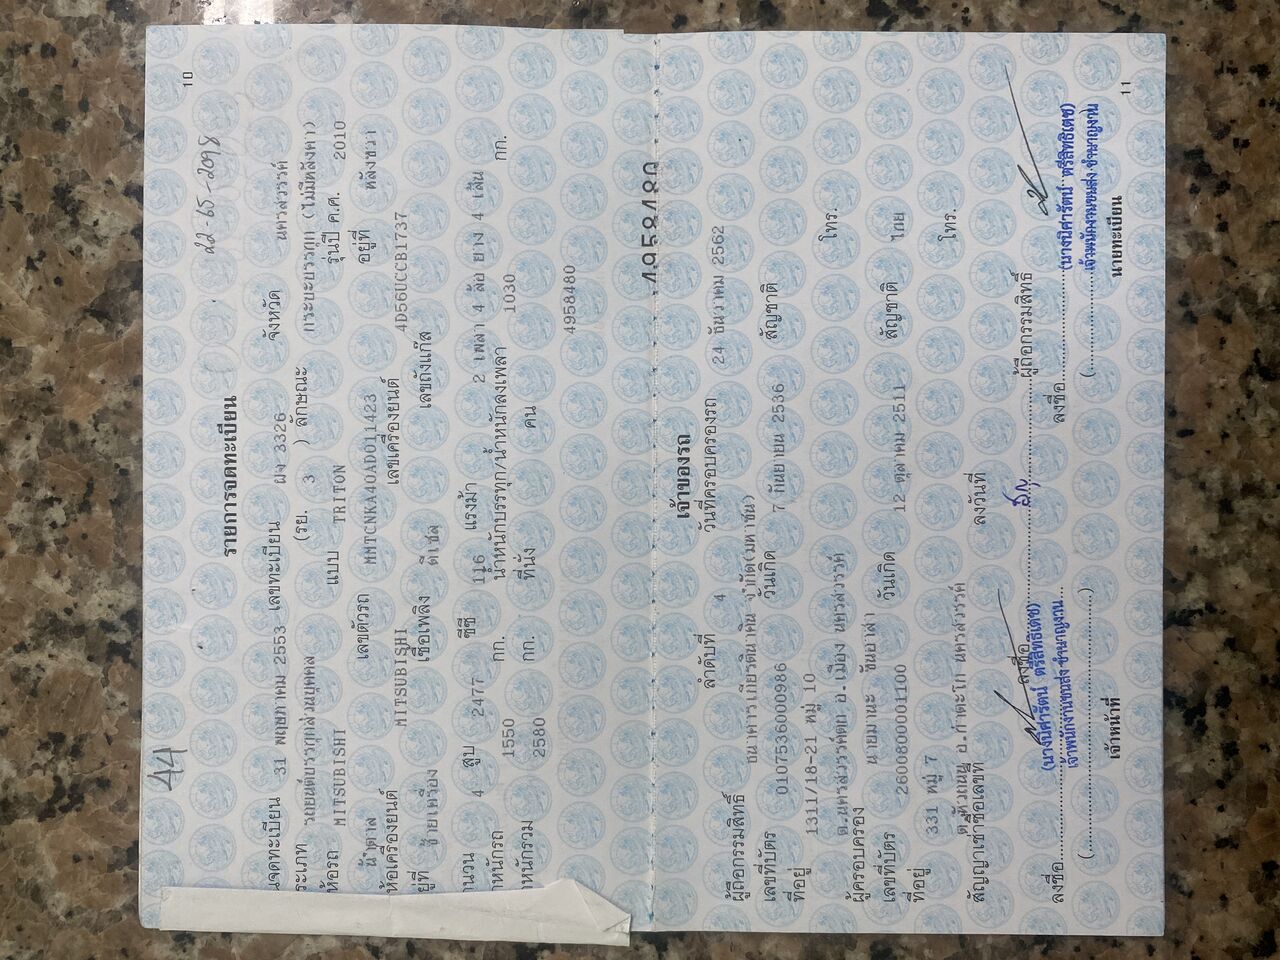 10
44
22-65-2098
รายการจดทะเบียน
นจดทะเบียน 31 พฤษภาคม 2553 เลขทะเบียน ผง 3326 จังหวัด นครสวรรค์
ระเภท รถยนต์บรรทุกส่วนบุคคล (รย. 3 ) ลักษณะ กระบะบรรทุก (ไม่มีหลังคา)
ห้อรถ MITSUBISHI แบบ TRITON รุ่นปี ค.ศ. 2010
น้ำตาล เลขตัวรถ MMTCNKA40AD011423 อยู่ที่ หลังขวา
ห้อเครื่องยนต์ MITSUBISHI เลขเครื่องยนต์ 4D56UCCB1737
ยู่ที่ ซ้ายเครื่อง เชื้อเพลิง ดีเซล เลขถังแก๊ส
านวน 4 สูบ 2477 ซีซี 116 แรงม้า 2 เพลา 4 ล้อ ยาง 4 เส้น
าหนักรถ 1550 กก. น้ำหนักบรรทุก/น้ำหนักลงเพลา 1030 กก.
าหนักรวม 2580 กก. ที่นั่ง คน
4958480
4958480
เจ้าของรถ
ลำดับที่ 4 วันที่ครอบครองรถ 24 ธันวาคม 2562
ผู้ถือกรรมสิทธิ์ ธนาคารเกียรตินาคิน จำกัด(มหาชน)
เลขที่บัตร 0107536000986 วันเกิด 7 กันยายน 2536 สัญชาติ
ที่อยู่ 1311/18-21 หมู่ 10
ต.นครสวรรค์ตก อ.เมือง นครสวรรค์ โทร.
ผู้ครอบครอง นายมานะ ขันอาสา
เลขที่บัตร 2600800001100 วันเกิด 12 ตุลาคม 2511 สัญชาติ ไทย
ที่อยู่ 331 หมู่ 7
ต.หัวถนน อ.ท่าตะโก นครสวรรค์ โทร.
สัญญาเช่าซื้อเลขที่ ลงวันที่
ลงชื่อ ผู้ถือกรรมสิทธิ์
ลงชื่อ (นางนิศารัตน์ ตรีสิทธิเดช) ลงชื่อ (นางนิศารัตน์ ตรีสิทธิเดช)
( เจ้าพนักงานขนส่ง ชำนาญงาน ) ( เจ้าพนักงานขนส่ง ชำนาญงาน
เจ้าหน้าที่ นายทะเบียน
11